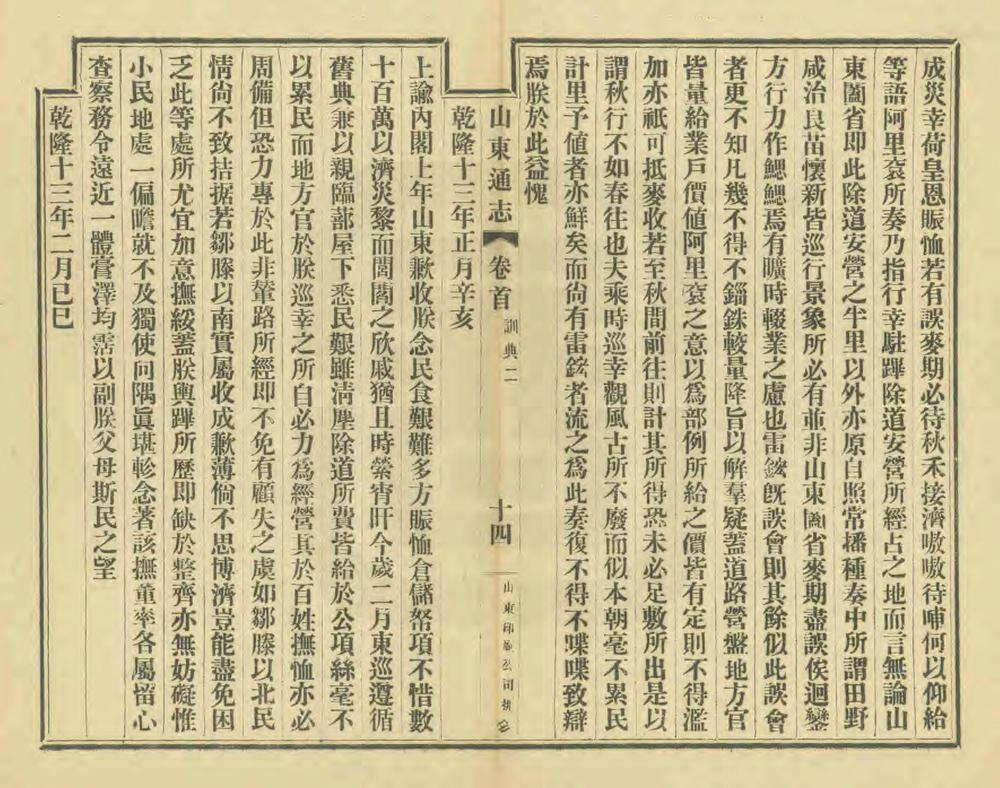 成災幸荷皇恩賑恤若有誤麥期必待秋禾接濟嗷嗷待哺何以仰給
等語阿里袞所奏乃指行幸駐蹕除道安營所經占之地而言無論山
東闔省即此除道安營之半里以外亦原自照常播種奏中所謂田野
咸治良苗懷新皆巡行景象所必有並非山東闔省麥期盡誤俟迴鑾
方行力作鰓鰓焉有曠時輟業之慮也雷鋐旣誤會則其餘似此誤會
者更不知凡幾不得不錙銖較量降旨以解羣疑蓋道路營盤地方官
皆量給業戶價値阿里袞之意以爲部例所給之價皆有定則不得濫
加亦祇可抵麥收若至秋間前往則計其所得恐未必足敷所出是以
謂秋行不如春往也夫乘時巡幸觀風古所不廢而似本朝毫不累民
計里予値者亦鮮矣而尙有雷鋐者流之爲此奏復不得不喋喋致辯
焉朕於此益愧
山東通志
卷首
訓典二
十四
山東印刷公司
乾隆十三年正月辛亥
上諭內閣上年山東歉收朕念民食艱難多方賑恤倉儲帑項不惜數
十百萬以濟災黎而閭閻之欣戚猶且時縈宵旰今歲二月東巡遵循
舊典兼以親臨蔀屋下悉民艱雖淸塵除道所費皆給於公項絲毫不
以累民而地方官於朕巡幸之所自必力爲經營其於百姓撫恤亦必
周備但恐力專於此非輦路所經即不免有顧失之虞如鄒滕以北民
情尙不致拮据若鄒滕以南實屬收成歉薄倘不思博濟豈能盡免困
乏此等處所尤宜加意撫綏蓋朕輿蹕所歷即缺於整齊亦無妨礙惟
小民地處一偏瞻就不及獨使向隅眞堪軫念著該撫董率各屬留心
查察務令遠近一體膏澤均霑以副朕父母斯民之望
乾隆十三年二月己巳